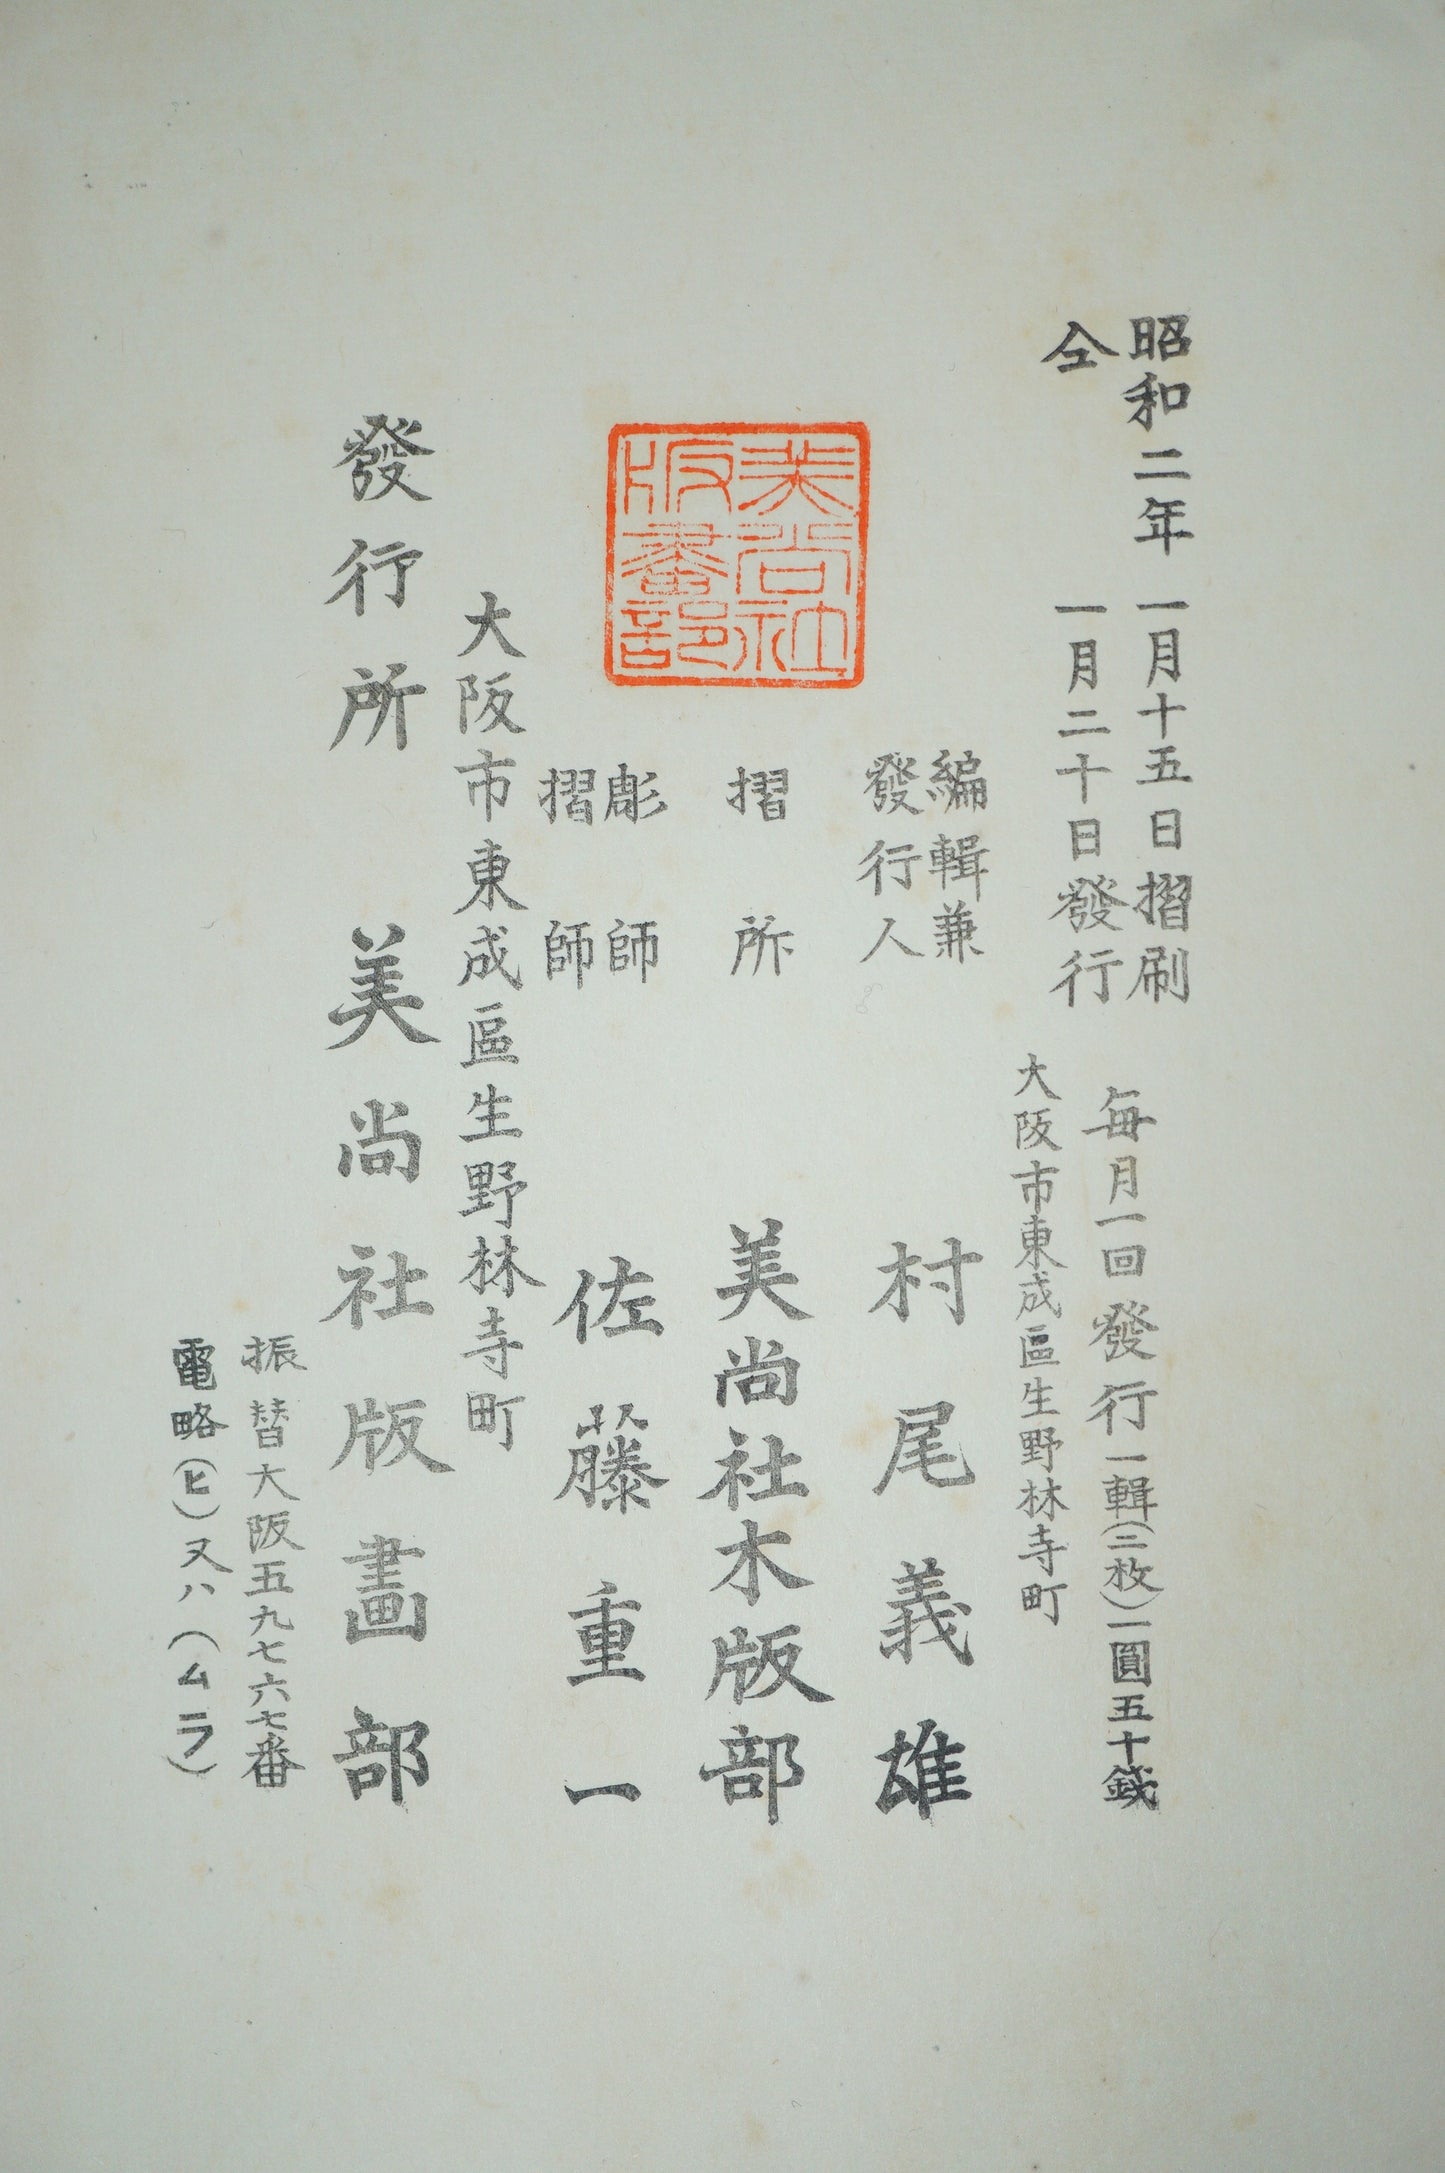 昭和二年一月十五日摺刷
仝　　　一月二十日發行
毎月一回發行一輯(二枚)一圓五十錢
大阪市東成區生野林寺町
編輯兼
發行人
村尾義雄
摺所
美尚社木版部
彫師
摺師
佐藤重一
美尚社
版畫部
大阪市東成區生野林寺町
發行所
美尚社版畫部
振替大阪五九七六七番
電略(ヒ)又ハ(ムラ)